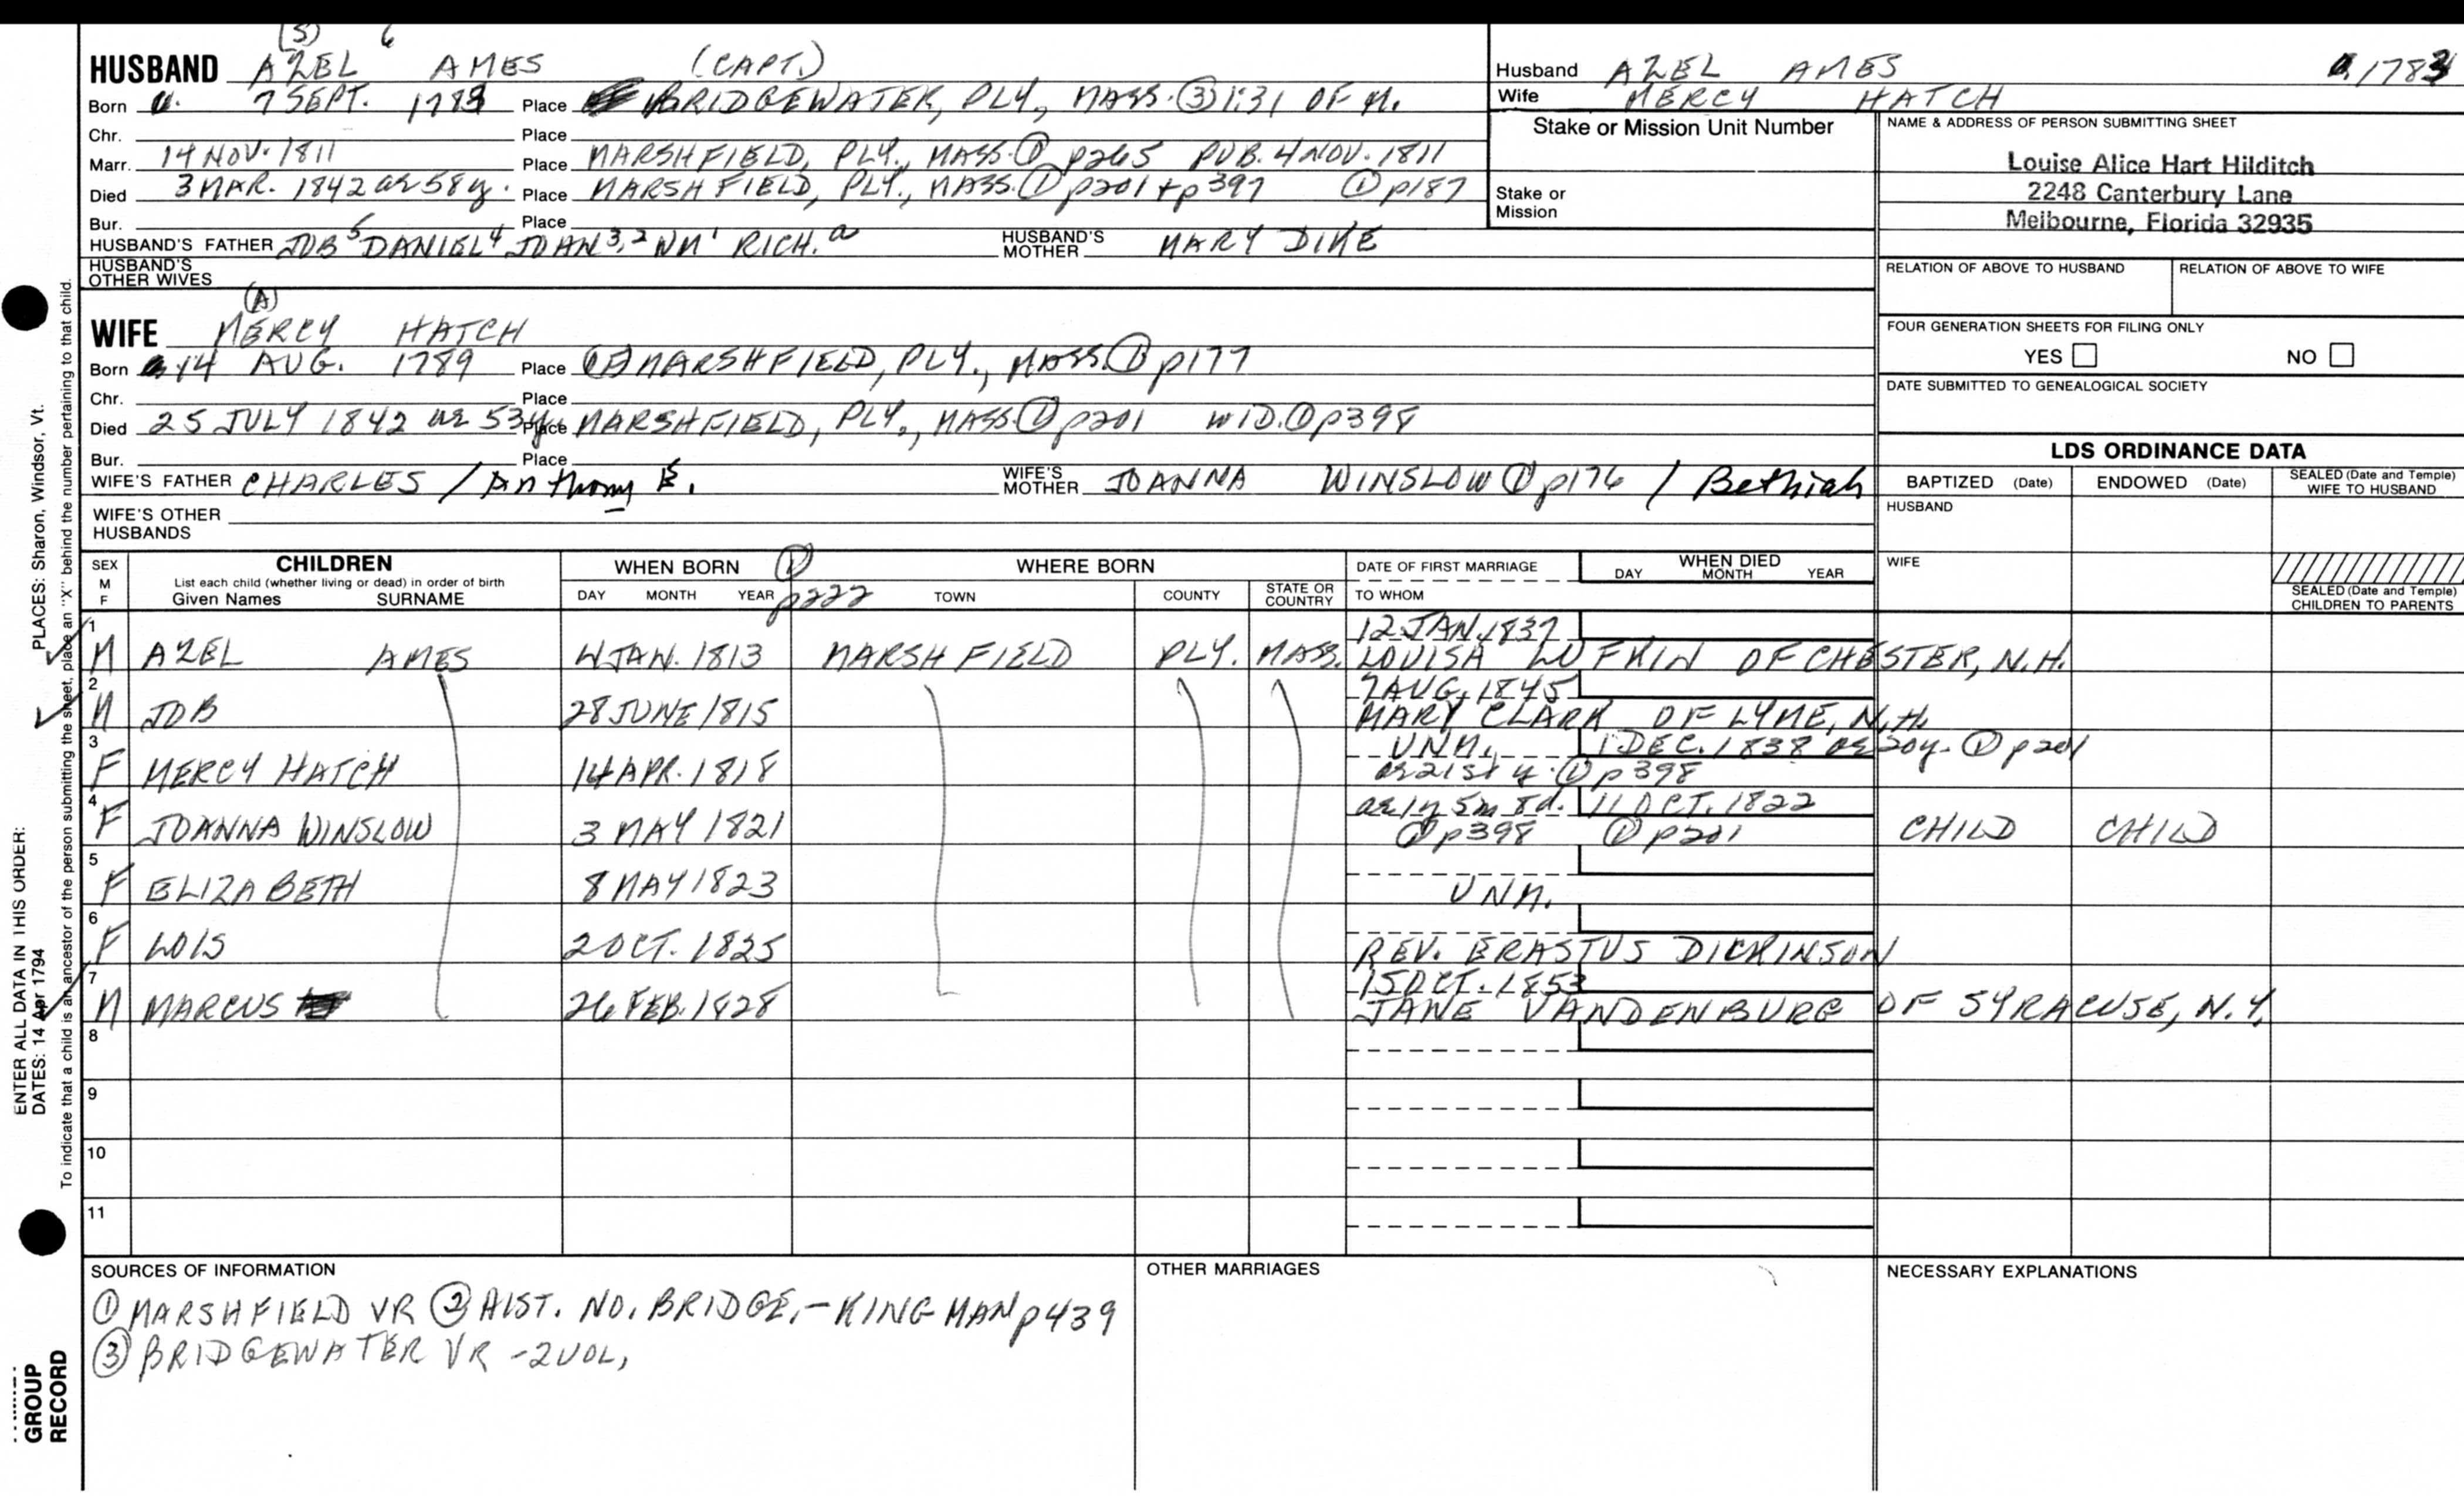 (S) 6
HUSBAND AZEL AMES (CAPT.)
Born 7 SEPT. 1783 Place BRIDGEWATER, PLY., MASS. ③ 1:31 OF M.
Chr. Place
Marr. 14 NOV. 1811 Place MARSHFIELD, PLY., MASS. ① p265 PUB. 4 NOV. 1811
Died 3 MAR. 1842 ae 58y. Place MARSHFIELD, PLY., MASS. ① p201 + p397 ① p187
Bur. Place
HUSBAND'S FATHER JOB 5 DANIEL 4 JOHN 3,2 WM 1 RICH. a HUSBAND'S MOTHER MARY DIKE
HUSBAND'S OTHER WIVES
Husband AZEL AMES 1783
Wife MERCY HATCH
Stake or Mission Unit Number
Stake or Mission
NAME & ADDRESS OF PERSON SUBMITTING SHEET
Louise Alice Hart Hilditch
2248 Canterbury Lane
Melbourne, Florida 32935
RELATION OF ABOVE TO HUSBAND RELATION OF ABOVE TO WIFE
FOUR GENERATION SHEETS FOR FILING ONLY
YES NO
DATE SUBMITTED TO GENEALOGICAL SOCIETY
(A)
WIFE MERCY HATCH
Born 14 AUG. 1789 Place MARSHFIELD, PLY., MASS. ① p177
Chr. Place
Died 25 JULY 1842 ae 53y. Place MARSHFIELD, PLY., MASS. ① p201 WID. ① p398
Bur. Place
WIFE'S FATHER CHARLES / Anthony E. WIFE'S MOTHER JOANNA WINSLOW ① p176 / Bethiah
WIFE'S OTHER HUSBANDS
LDS ORDINANCE DATA
BAPTIZED (Date) ENDOWED (Date) SEALED (Date and Temple) WIFE TO HUSBAND
HUSBAND
WIFE
SEALED (Date and Temple) CHILDREN TO PARENTS
SEX M F CHILDREN WHEN BORN ① WHERE BORN DATE OF FIRST MARRIAGE WHEN DIED
List each child (whether living or dead) in order of birth DAY MONTH YEAR
Given Names SURNAME DAY MONTH YEAR p222 TOWN COUNTY STATE OR COUNTRY TO WHOM
1 12 JAN. 1837
M AZEL AMES JAN. 1813 MARSHFIELD PLY. MASS. LOUISA LUFKIN OF CHESTER, N.H.
2 7 AUG. 1845
M JOB 28 JUNE 1815 MARY CLARK OF LYME, N.H.
3 UNM. 1 DEC. 1838 ae 20y. ① p201
F MERCY HATCH 14 APR. 1818 ae 21st y. ① p398
4 ae 1y 5m 8d. 11 OCT. 1822
F JOANNA WINSLOW 3 MAY 1821 ① p398 ① p201 CHILD CHILD
5
F ELIZABETH 8 MAY 1823 UNM.
6
F LOIS 2 OCT. 1825 REV. ERASTUS DICKINSON
7 15 OCT. 1853
M MARCUS 26 FEB. 1828 JANE VANDENBURG OF SYRACUSE, N.Y.
8
9
10
11
SOURCES OF INFORMATION
① MARSHFIELD VR ② HIST. NO. BRIDGE. - KINGMAN p439
③ BRIDGEWATER VR - 2 VOL,
OTHER MARRIAGES
NECESSARY EXPLANATIONS
ENTER ALL DATA IN THIS ORDER:
DATES: 14 Apr 1794 PLACES: Sharon, Windsor, Vt.
To indicate that a child is an ancestor of the person submitting the sheet, place an "X" behind the number pertaining to that child.
GROUP
RECORD